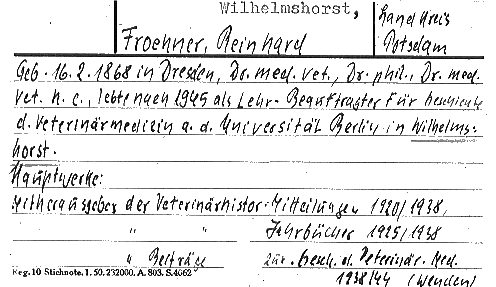 Wilhelmshorst,
Landkreis
Potsdam
Froehner, Reinhard
Geb. 16.2.1868 in Dresden, Dr. med. vet., Dr. phil., Dr. med.
vet. h. c., lebte nach 1945 als Lehr-Beauftragter für Geschichte
d. Veterinärmedizin a. d. Universität Berlin in Wilhelms-
horst.
Hauptwerke:
Mitherausgeber der Veterinärhistor. Mitteilungen 1920/1938,
" " Jahrbücher 1925/1938
" Beiträge zur Gesch. d. Veterinär. Med.
1938/44 (Wenden)
Reg. 10 Stichnote. 1. 50. 232000. A. 803. S. 4662